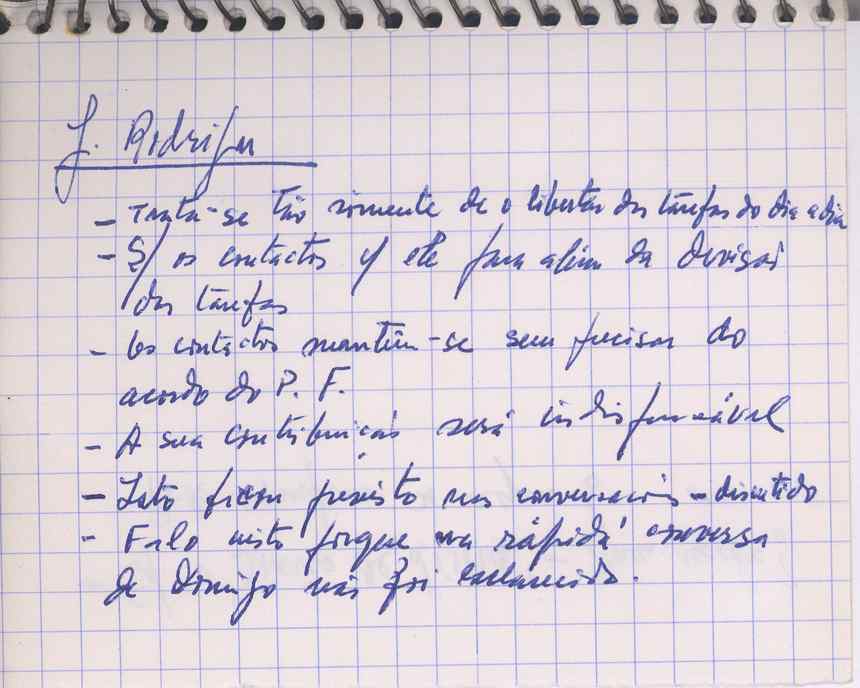 J. Rodrigu
- Trata-se tão somente de o libertar das tarefas do dia a dia
- S/ os contactos c/ ele para além da divisão
das tarefas
- Os contactos mantêm-se sem precisar do
acordo do P. F.
- A sua contribuição será indispensável
- Isto ficou previsto nas conversações - discutido
- Falo nisto porque na rápida conversa
de Domingo não foi esclarecido.